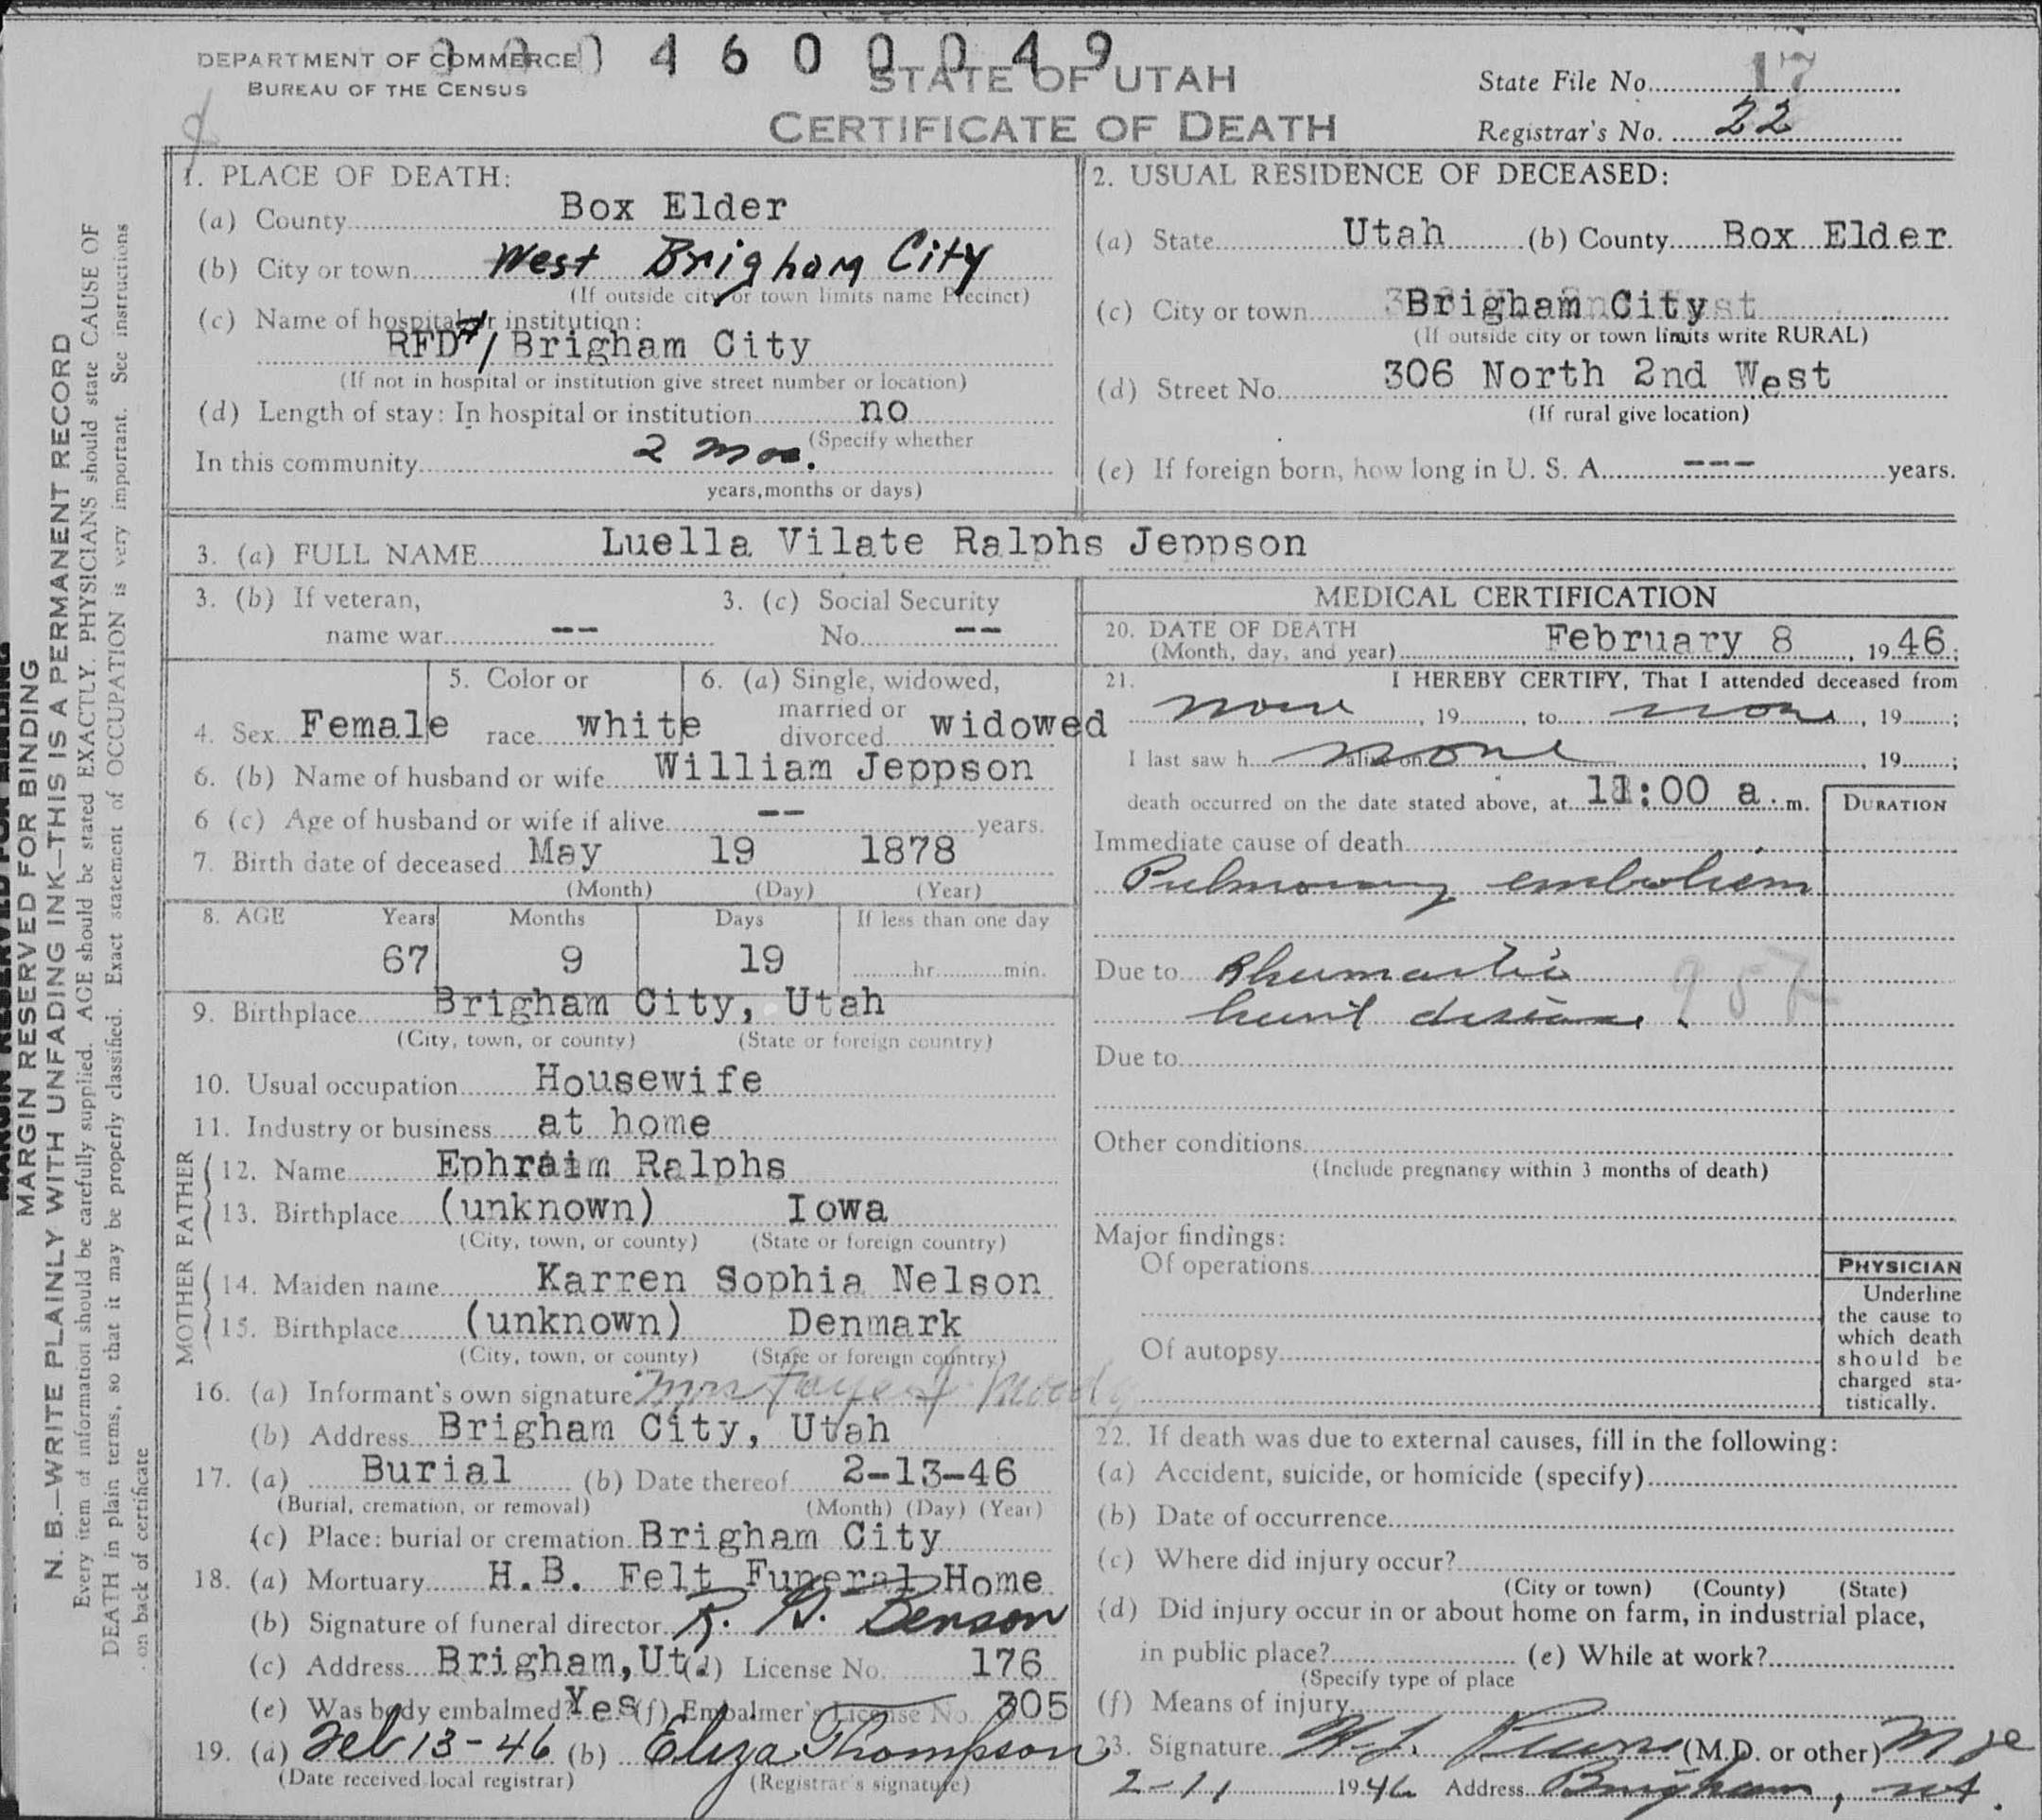 DEPARTMENT OF COMMERCE
BUREAU OF THE CENSUS
4600049
STATE OF UTAH
CERTIFICATE OF DEATH
State File No. 17
Registrar's No. 22
1. PLACE OF DEATH:
(a) County Box Elder
(b) City or town West Brigham City
(If outside city or town limits name Precinct)
(c) Name of hospital or institution:
RFD #1 Brigham City
(If not in hospital or institution give street number or location)
(d) Length of stay: In hospital or institution no
(Specify whether
In this community 2 mos.
years, months or days)
2. USUAL RESIDENCE OF DECEASED:
(a) State Utah (b) County Box Elder
(c) City or town Brigham City
(If outside city or town limits write RURAL)
(d) Street No. 306 North 2nd West
(If rural give location)
(e) If foreign born, how long in U. S. A. --- years.
3. (a) FULL NAME Luella Vilate Ralphs Jeppson
3. (b) If veteran, name war --
3. (c) Social Security No. --
4. Sex Female
5. Color or race white
6. (a) Single, widowed, married or divorced widowed
6. (b) Name of husband or wife William Jeppson
6 (c) Age of husband or wife if alive -- years.
7. Birth date of deceased May 19 1878
(Month) (Day) (Year)
8. AGE Years Months Days If less than one day
67 9 19 hr. min.
9. Birthplace Brigham City, Utah
(City, town, or county) (State or foreign country)
10. Usual occupation Housewife
11. Industry or business at home
FATHER
12. Name Ephraim Ralphs
13. Birthplace (unknown) Iowa
(City, town, or county) (State or foreign country)
MOTHER
14. Maiden name Karren Sophia Nelson
15. Birthplace (unknown) Denmark
(City, town, or county) (State or foreign country)
16. (a) Informant's own signature Mrs Faye J. Moody
(b) Address Brigham City, Utah
17. (a) Burial (b) Date thereof 2-13-46
(Burial, cremation, or removal) (Month) (Day) (Year)
(c) Place: burial or cremation Brigham City
18. (a) Mortuary H.B. Felt Funeral Home
(b) Signature of funeral director Benson
(c) Address Brigham, Ut. (d) License No. 176
(e) Was body embalmed? Yes (f) Embalmer's License No. 305
19. (a) Feb 13-46 (b) Eliza Thompson
(Date received local registrar) (Registrar's signature)
MEDICAL CERTIFICATION
20. DATE OF DEATH
(Month, day, and year) February 8, 1946;
21. I HEREBY CERTIFY, That I attended deceased from
none, 19, to none, 19;
I last saw h alive on none, 19;
death occurred on the date stated above, at 11:00 a. m.
DURATION
Immediate cause of death
Pulmonary embolism
Due to Rheumatic
heart disease.
Due to
Other conditions
(Include pregnancy within 3 months of death)
Major findings:
Of operations
Of autopsy
PHYSICIAN
Underline
the cause to
which death
should be
charged sta-
tistically.
22. If death was due to external causes, fill in the following:
(a) Accident, suicide, or homicide (specify)
(b) Date of occurrence
(c) Where did injury occur?
(City or town) (County) (State)
(d) Did injury occur in or about home on farm, in industrial place,
in public place? (e) While at work?
(Specify type of place
(f) Means of injury
23. Signature (M.D. or other)
2-11 1946 Address Brigham, Ut.
MARGIN RESERVED FOR BINDING
N. B.—WRITE PLAINLY WITH UNFADING INK—THIS IS A PERMANENT RECORD
Every item of information should be carefully supplied. AGE should be stated EXACTLY. PHYSICIANS should state CAUSE OF
DEATH in plain terms, so that it may be properly classified. Exact statement of OCCUPATION is very important. See instructions
on back of certificate